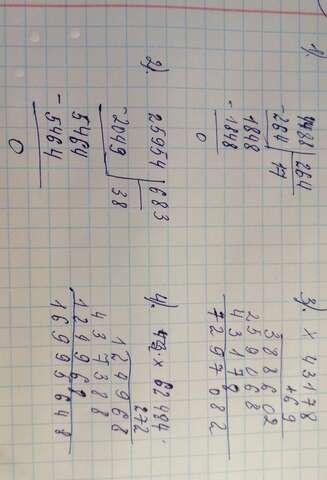 1).
4488 264
-264 17
1848
-1848
0
2).
25954 683
-2049 38
5464
-5464
0
3). x 43178
169
388602
259068
43178
7297082
4). x 62484
272
124968
437388
124968
16995648